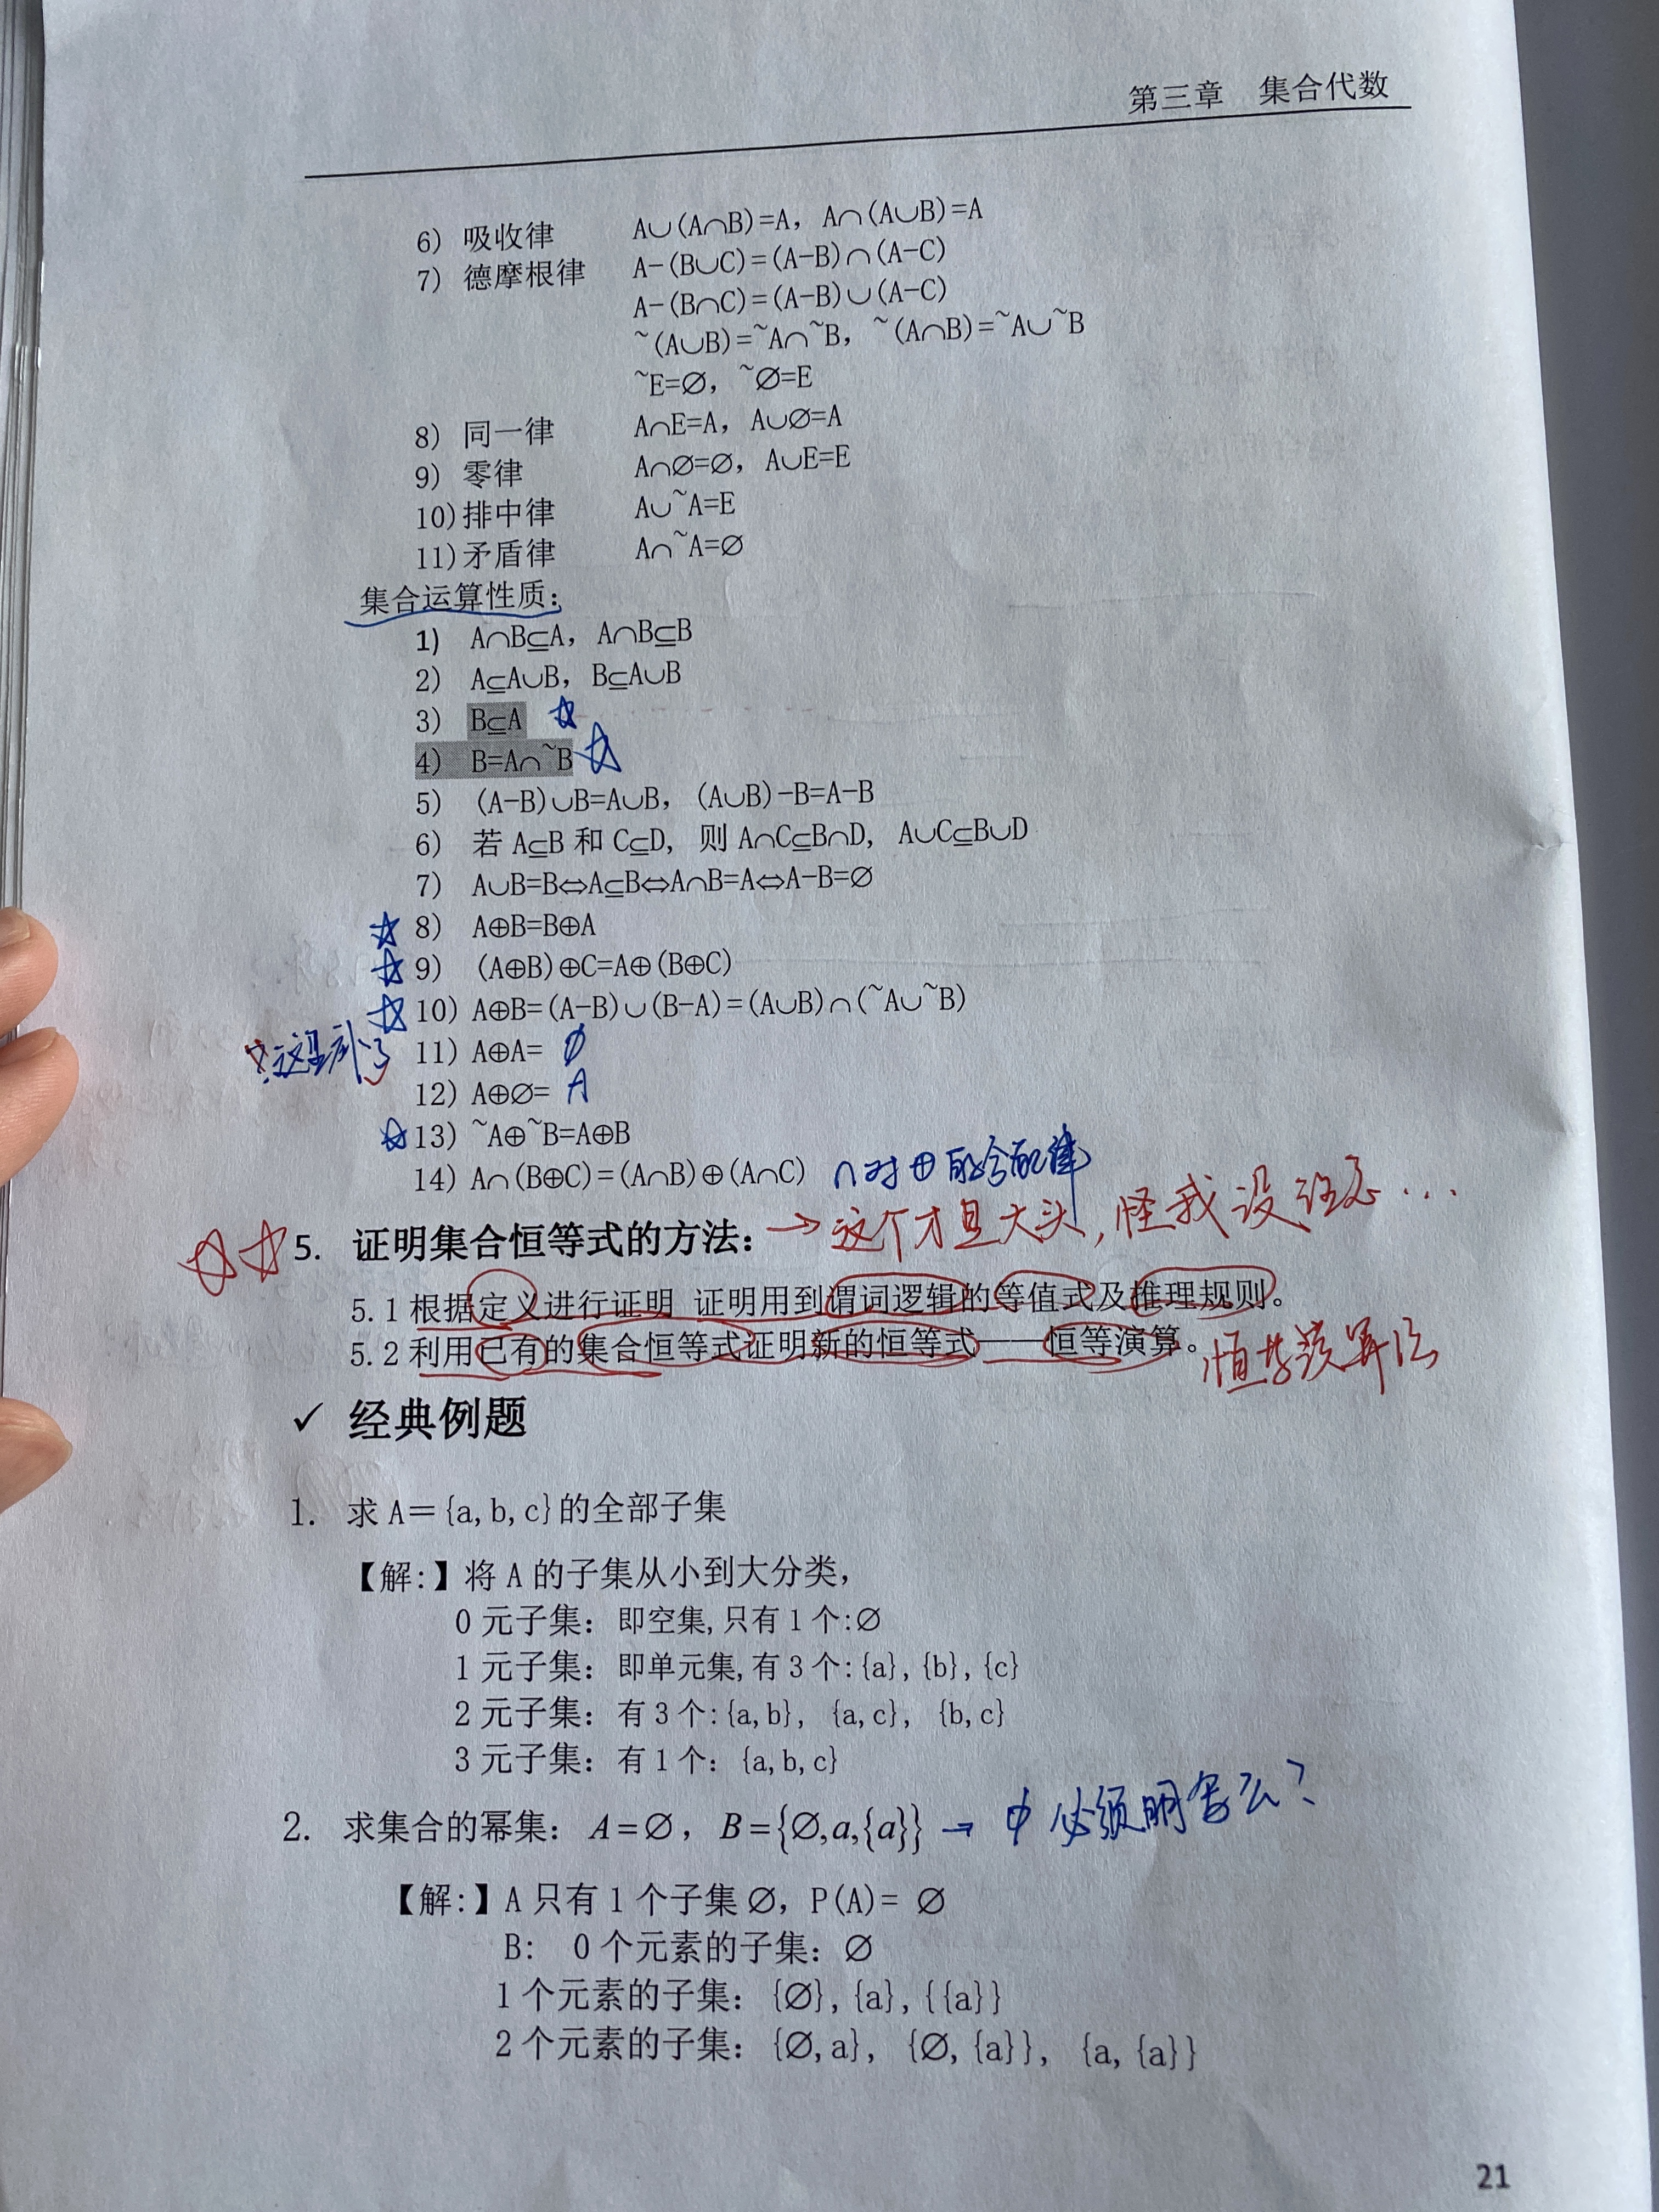 第三章 集合代数
6) 吸收律 A∪(A∩B)=A, A∩(A∪B)=A
7) 德摩根律 A-(B∪C)=(A-B)∩(A-C)
A-(B∩C)=(A-B)∪(A-C)
~(A∪B)=~A∩~B, ~(A∩B)=~A∪~B
~E=∅, ~∅=E
8) 同一律 A∩E=A, A∪∅=A
9) 零律 A∩∅=∅, A∪E=E
10)排中律 A∪~A=E
11)矛盾律 A∩~A=∅
集合运算性质:
1) A∩B⊆A, A∩B⊆B
2) A⊆A∪B, B⊆A∪B
3) B⊆A
4) B=A∩~B
5) (A-B)∪B=A∪B, (A∪B)-B=A-B
6) 若 A⊆B 和 C⊆D, 则 A∩C⊆B∩D, A∪C⊆B∪D
7) A∪B=B⇔A⊆B⇔A∩B=A⇔A-B=∅
8) A⊕B=B⊕A
9) (A⊕B)⊕C=A⊕(B⊕C)
10) A⊕B=(A-B)∪(B-A)=(A∪B)∩(~A∪~B)
11) A⊕A= ∅
12) A⊕∅= A
13) ~A⊕~B=A⊕B
14) A∩(B⊕C)=(A∩B)⊕(A∩C) ∩对⊕的分配律
5. 证明集合恒等式的方法: →这个才是大头,怪我没注意...
5.1 根据定义进行证明 证明用到谓词逻辑的等值式及推理规则。
5.2 利用已有的集合恒等式证明新的恒等式——恒等演算。
✓ 经典例题
1. 求 A={a,b,c}的全部子集
【解:】将 A 的子集从小到大分类,
0 元子集: 即空集,只有 1 个:∅
1 元子集: 即单元集,有 3 个:{a},{b},{c}
2 元子集: 有 3 个:{a,b}, {a,c}, {b,c}
3 元子集: 有 1 个: {a,b,c}
2. 求集合的幂集: A=∅, B={∅,a,{a}} → ϕ必须明写么?
【解:】A 只有 1 个子集 ∅, P(A)= ∅
B: 0 个元素的子集: ∅
1 个元素的子集: {∅},{a},{{a}}
2 个元素的子集: {∅,a}, {∅,{a}}, {a,{a}}
21